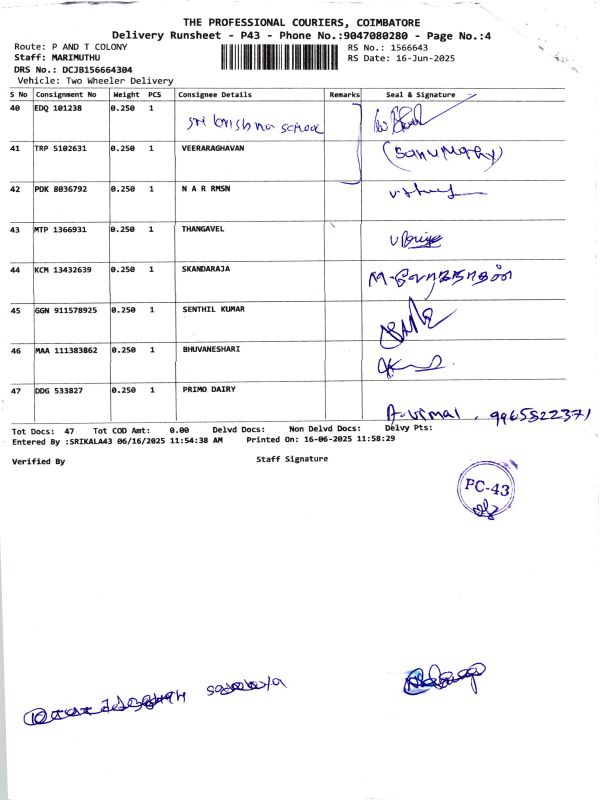 THE PROFESSIONAL COURIERS, COIMBATORE
Delivery Runsheet - P43 - Phone No.:9047080280 - Page No.:4
Route: P AND T COLONY
RS No.: 1566643
Staff: MARIMUTHU
RS Date: 16-Jun-2025
DRS No.: DCJB156664304
Vehicle: Two Wheeler Delivery
S No Consignment No Weight PCS Consignee Details Remarks Seal & Signature
40 EDQ 101238 0.250 1 sri krishna school
41 TRP 5102631 0.250 1 VEERARAGHAVAN
42 PDK 8036792 0.250 1 N A R RMSN
43 MTP 1366931 0.250 1 THANGAVEL
44 KCM 13432639 0.250 1 SKANDARAJA
45 GGN 911578925 0.250 1 SENTHIL KUMAR
46 MAA 111383862 0.250 1 BHUVANESHARI
47 DDG 533827 0.250 1 PRIMO DAIRY A-vimal . 9965822371
Tot Docs: 47 Tot COD Amt: 0.00 Delvd Docs: Non Delvd Docs: Delvy Pts:
Entered By :SRIKALA43 06/16/2025 11:54:38 AM Printed On: 16-06-2025 11:58:29
Verified By Staff Signature
PC-43